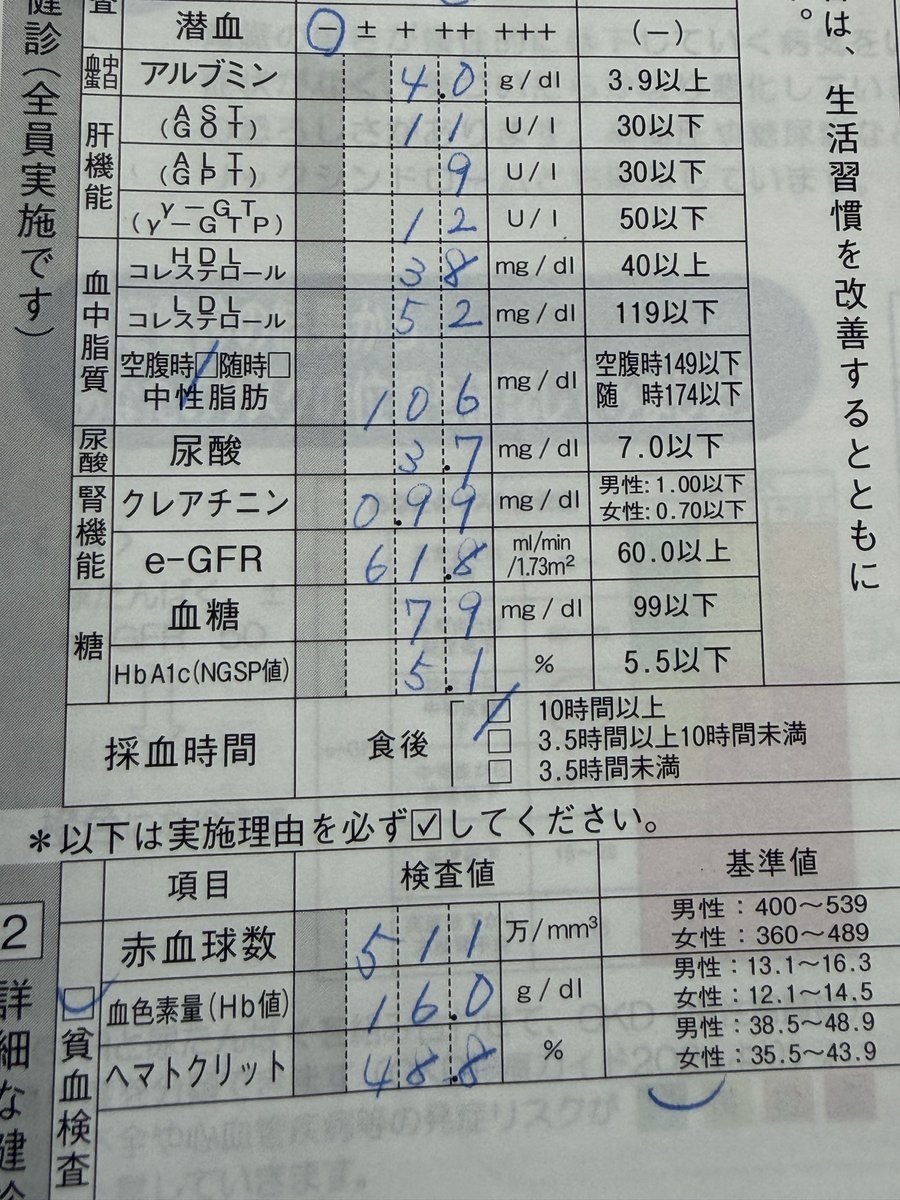 査
潜血 － ± ＋ ＋＋ ＋＋＋ （－）
血中蛋白 アルブミン 4.0 g/dl 3.9以上
肝機能
AST(GOT) 11 U/l 30以下
ALT(GPT) 9 U/l 30以下
γ-GT(γ-GTP) 12 U/l 50以下
血中脂質
HDLコレステロール 38 mg/dl 40以上
LDLコレステロール 52 mg/dl 119以下
空腹時□随時□
中性脂肪 106 mg/dl
空腹時149以下
随 時174以下
尿酸 尿酸 3.7 mg/dl 7.0以下
腎機能
クレアチニン 0.99 mg/dl
男性:1.00以下
女性:0.70以下
e-GFR 61.8 ml/min/1.73m² 60.0以上
糖
血糖 79 mg/dl 99以下
HbA1c(NGSP値) 5.1 % 5.5以下
採血時間 食後
□ 10時間以上
□ 3.5時間以上10時間未満
□ 3.5時間未満
＊以下は実施理由を必ず☑してください。
項目 検査値 基準値
□貧血検査
赤血球数 511 万/mm³
男性：400〜539
女性：360〜489
血色素量(Hb値) 16.0 g/dl
男性：13.1〜16.3
女性：12.1〜14.5
ヘマトクリット 48.8 %
男性：38.5〜48.9
女性：35.5〜43.9
健診（全員実施です）
2
詳細な健診
は、生活習慣を改善するとともに
。